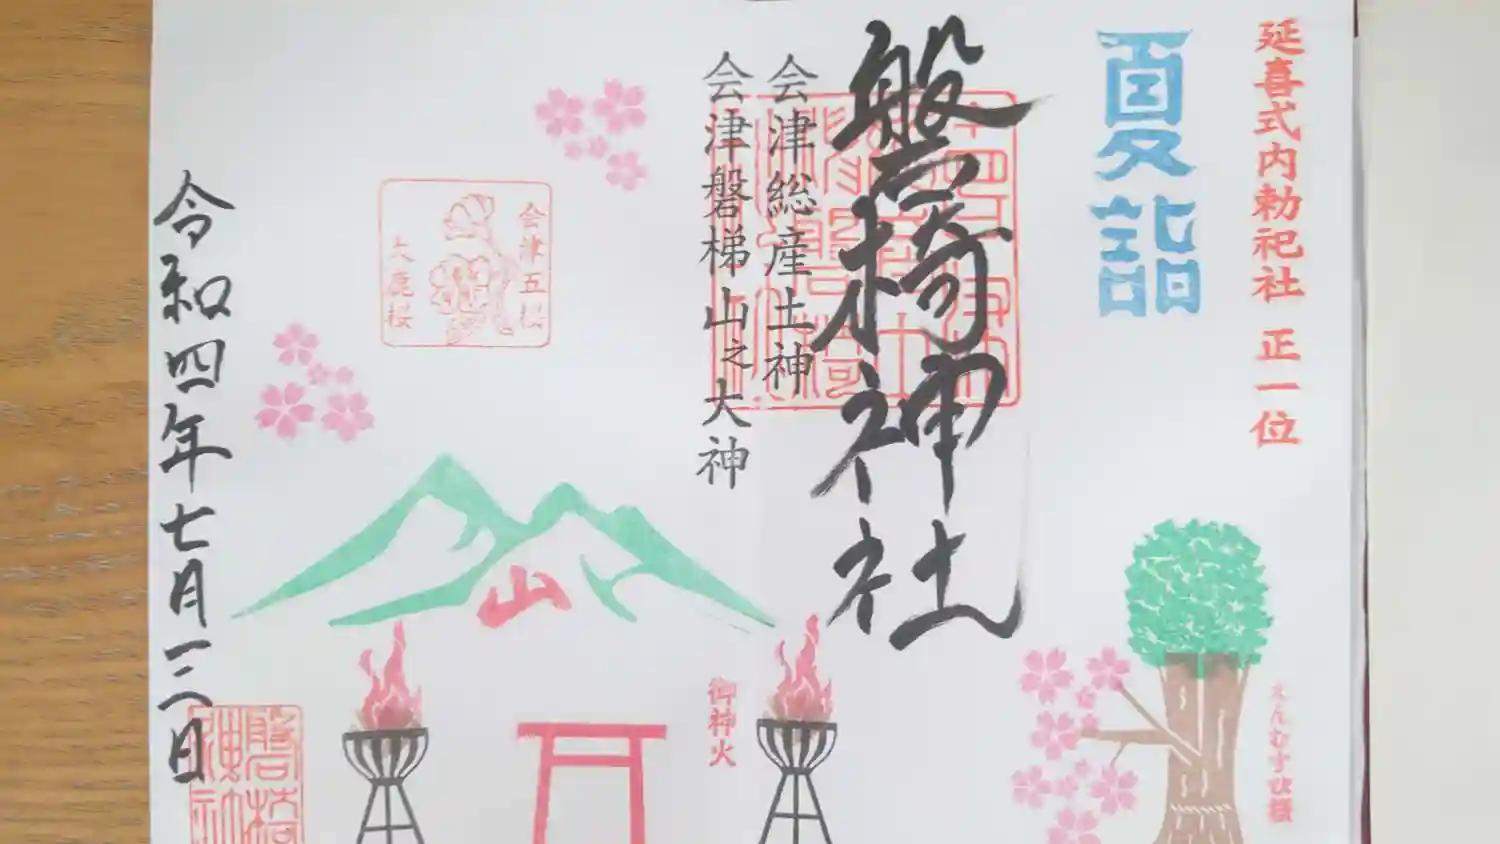 延喜式内勅祀社 正一位
夏詣
磐椅神社
会津総産土神
会津磐梯山之大神
会津五桜
大鹿桜
山
御神火
えんむすび桜
令和四年七月一二日